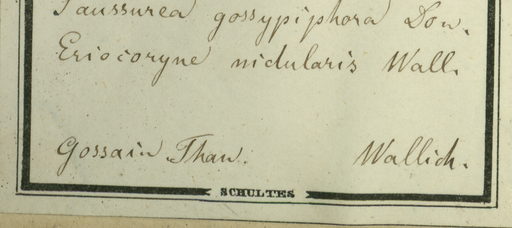 Saussurea gossypiphora Don.
Eriocoryne nidularis Wall.
Gossain Than. Wallich.
SCHULTES